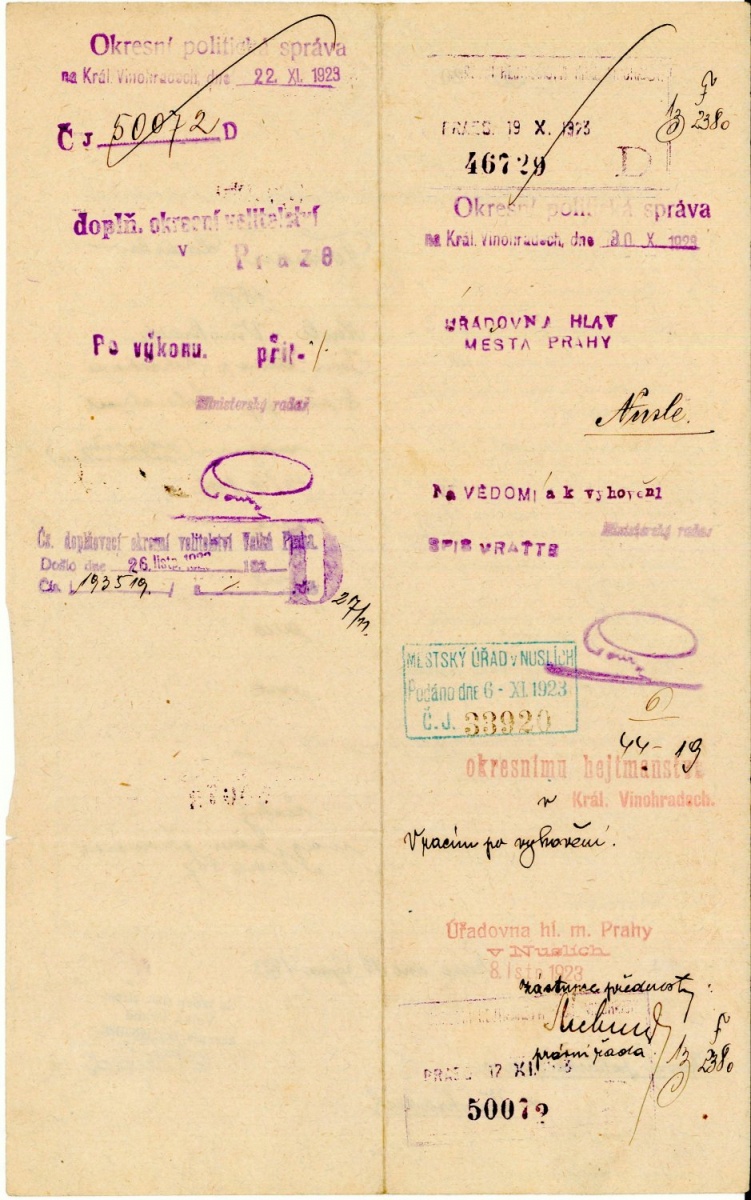 Okresní politická správa
na Král. Vinohradech, dne 22. XI. 1923
Č J 50072 D
doplň. okresní velitelství
v
Praze
Po výkonu. příl-%
Ministerský rada:
Čs. doplňovací okresní velitelství Velká Praha.
Došlo dne 26. listo. 192
Čís. 193519. /
D
27/11.
PRAES. 19 X. 1923
46729 D
13 2380
Okresní politická správa
na Král. Vinohradech, dne 30. X. 1923
ÚŘADOVNA HLAV
MĚSTA PRAHY
Nusle.
Na VĚDOMÍ a k vyhovění
Ministerský rada:
SPIS VRAŤTE
MĚSTSKÝ ÚŘAD v NUSLÍCH
Podáno dne 6 - XI. 1923
Č. J. 33920
6
44-19
okresnímu hejtmanství
v Král. Vinohradech.
Vracím po vyhovění.
Úřadovna hl. m. Prahy
v Nuslích
8. listo 1923
zástupce přednosty:
právní rada
13 2380
PRAES 17 XI.
50072